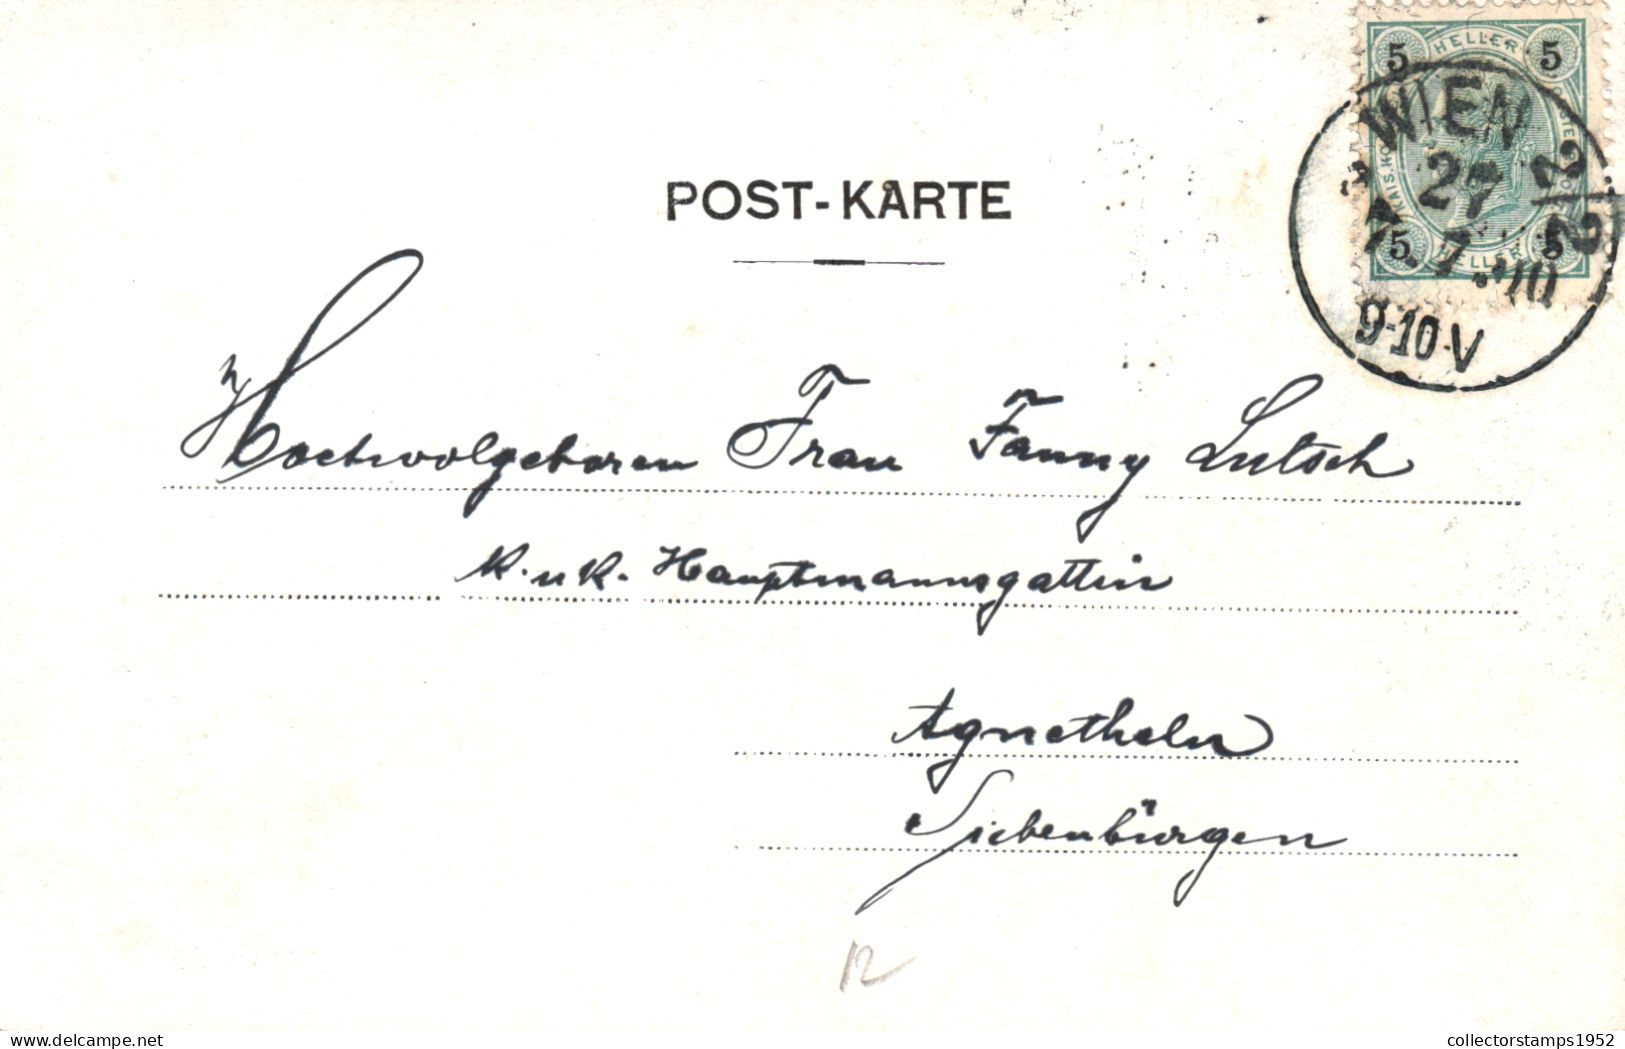 5 HELLER 5
WIEN
2/2
27
7. 7. 00
9-10·V
5 HELLER 5
POST-KARTE
Hochwolgeboren Frau Fanny Lutsch
k. u k. Hauptmannsgattin
Agnetheln
Siebenbürgen
12
delcampe.net
collectorstamps1952